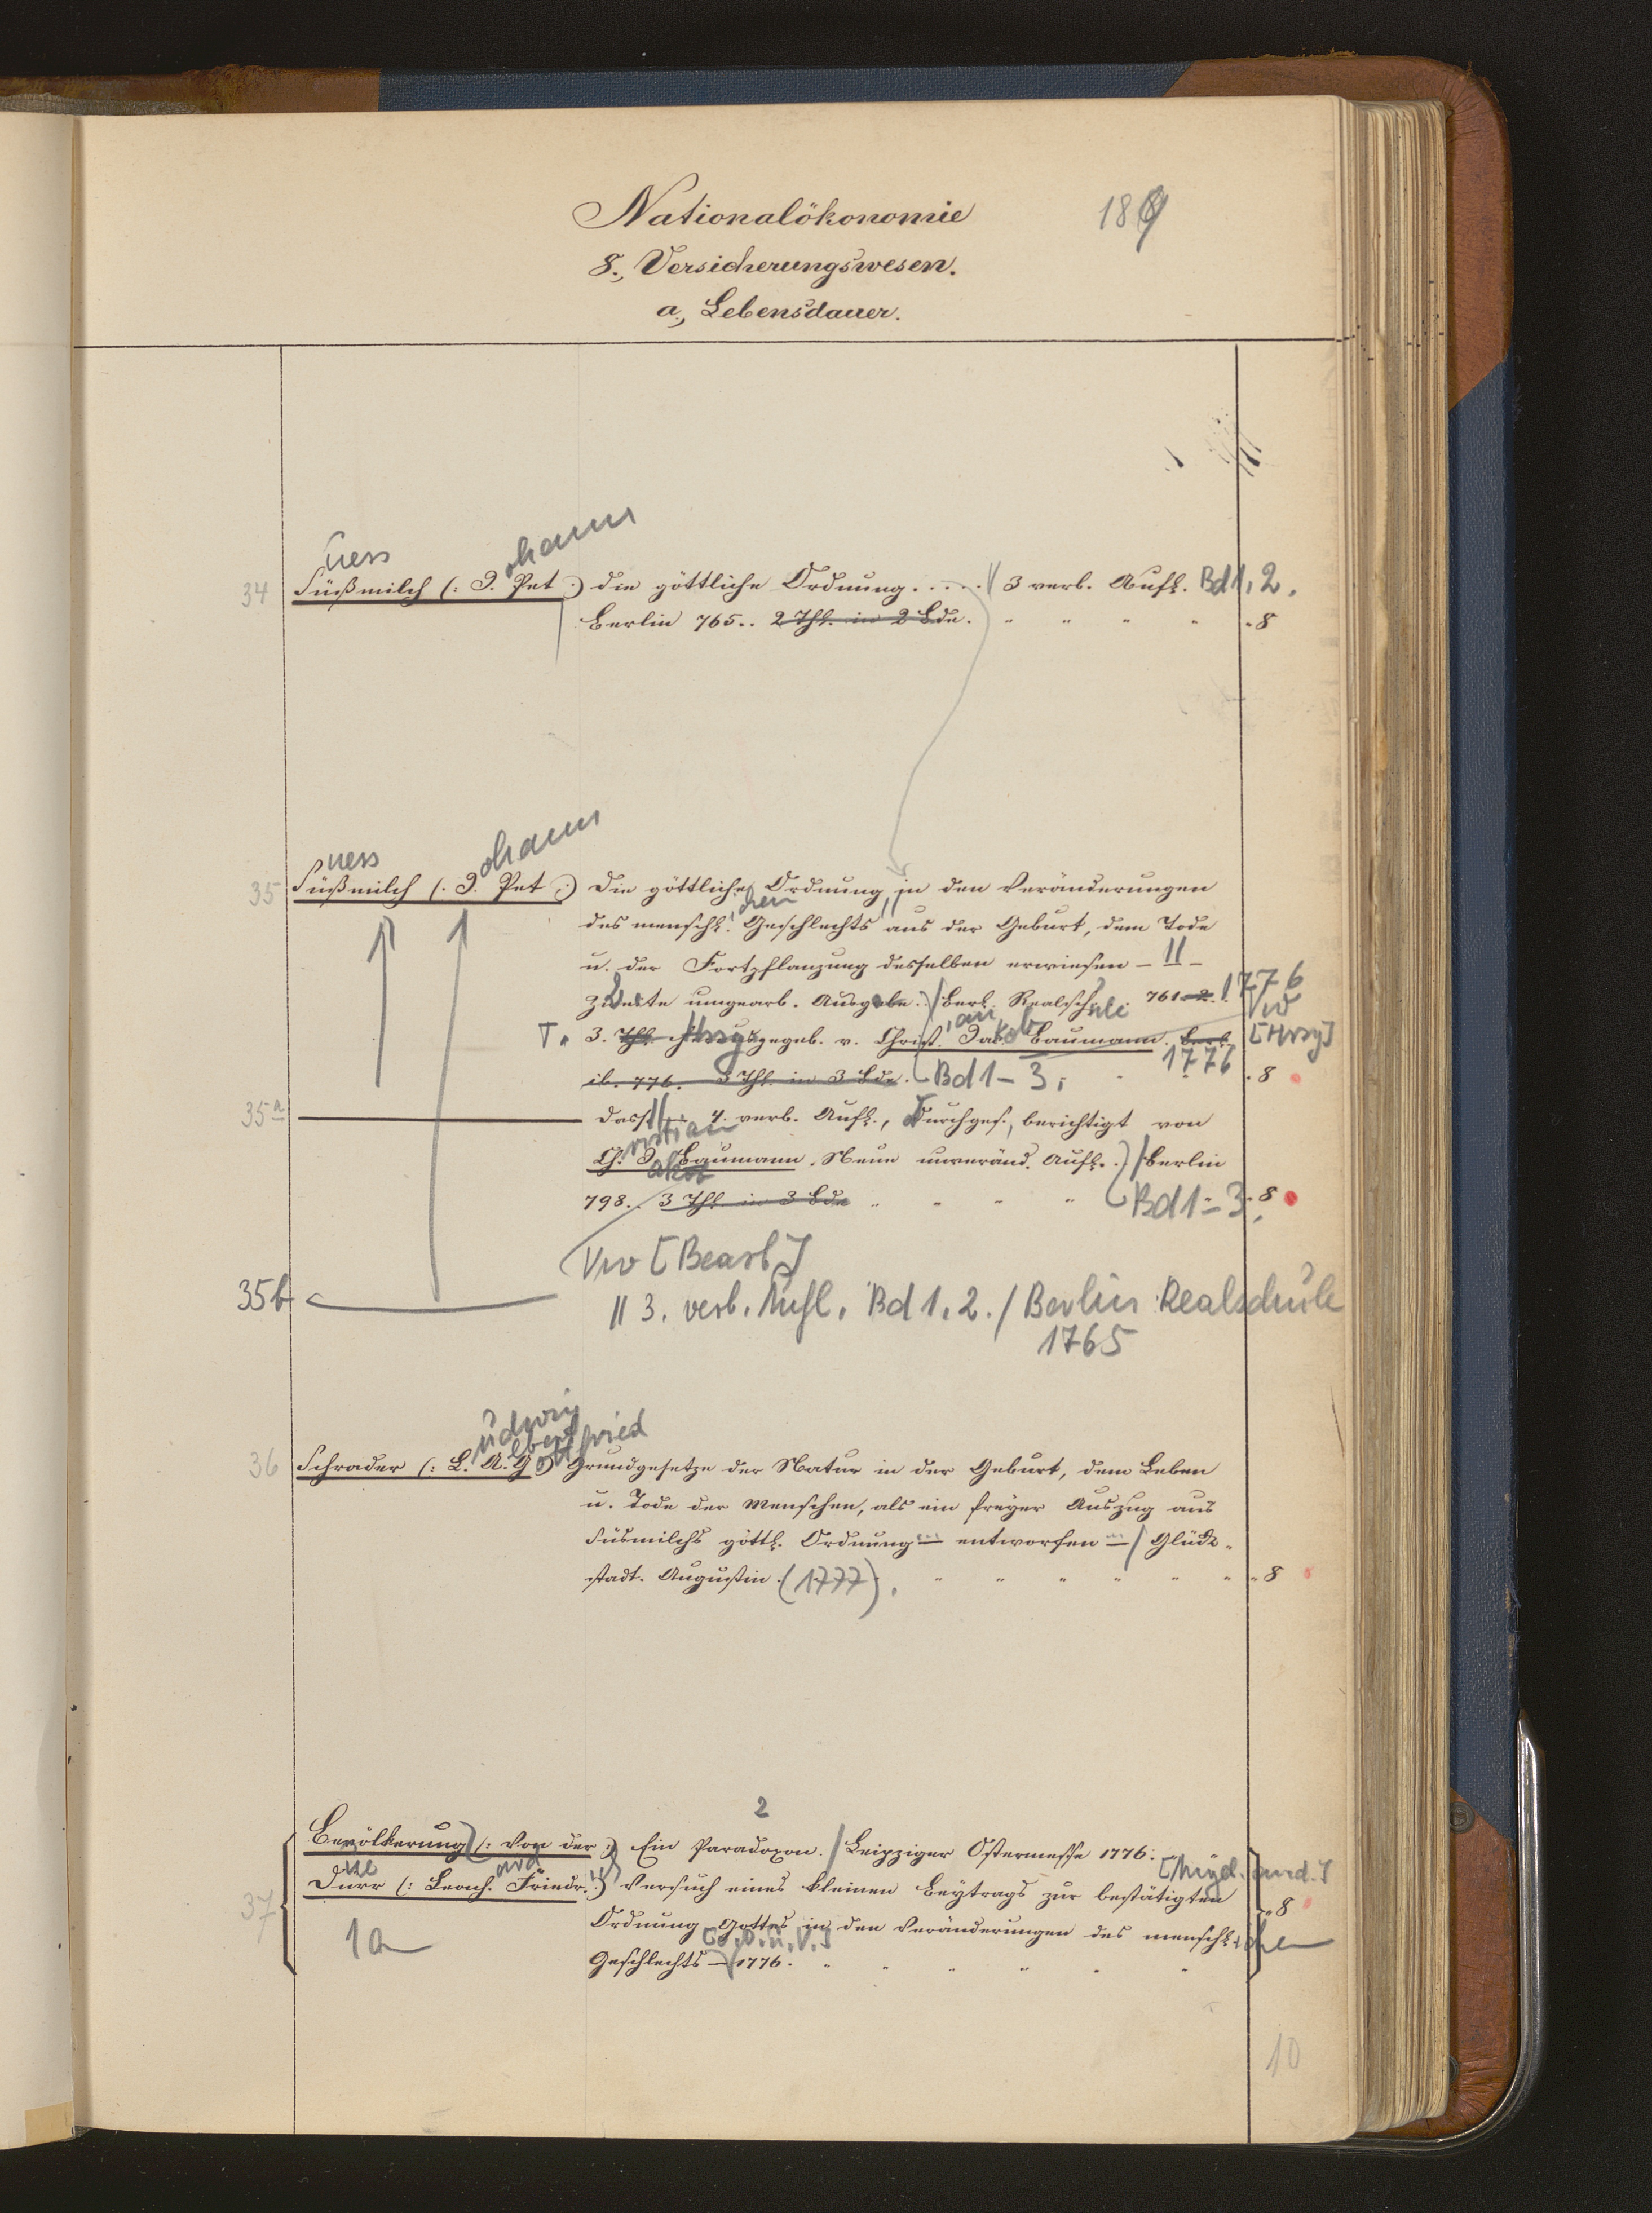 Nationalökonomie
189
8., Versicherungswesen.
a., Lebensdauer.
uess
ohann
34 Süßmilch (: J. Pet :) die göttliche Ordnung. . . . . || 3 verb. Aufl. Bd 1, 2.
Berlin 765.. 2 Thl. in 2 Bde. " " " " " 8
uess
ohann
35 Süßmilch (: J. Pet :) Die göttliche Ordnung, in den Veränderungen
des menschl. chen Geschlechts aus der Geburt, dem Tode
u. der Fortpflanzung desselben erwiesen – || –
Zweite umgearb. Ausgabe.) / Berl. Realschule 761-2. 1776
Vw
T. 3. Thl. Hrsg gegeb. v. Christ. ian Jakob Baumann. Berl. [Hrsg]
ib. 776. 3 Thl. in 3 Bde. Bd 1-3, 1776 " 8
35a Dass. || 4. verb. Aufl., Durchges., berichtigt von
Ch. ristian J. akob Baumann. Neue unveränd. Aufl..) / Berlin
798.. 3 Thl. in 3 Bde " " " " Bd 1-3, 8
Vw [Bearb]
35b || 3. verb. Aufl. Bd 1, 2. / Berlin: Realschule
1765
udwig
lbert
ottfried
36 Schrader (: L. A. G :) Grundgesetze der Natur in der Geburt, dem Leben
u. Tode der Menschen, als ein freyer Auszug aus
Süsmilchs göttl. Ordnung – entworfen – / Glück-
stadt. Augustin. (1777). " " " " " " 8
2
Bevölkerung (: Von der :) Ein Paradoxon. / Leipziger Ostermesse 1776.
ue
ard
37 Dürr (: Leonh. Friedr. :) Versuch eines kleinen Beytrags zur bestätigten
Ordnung Gottes in den Veränderungen des menschl. iche
1a Geschlechts – [o. O. u. V.] 1776. " " " " " " 8
10